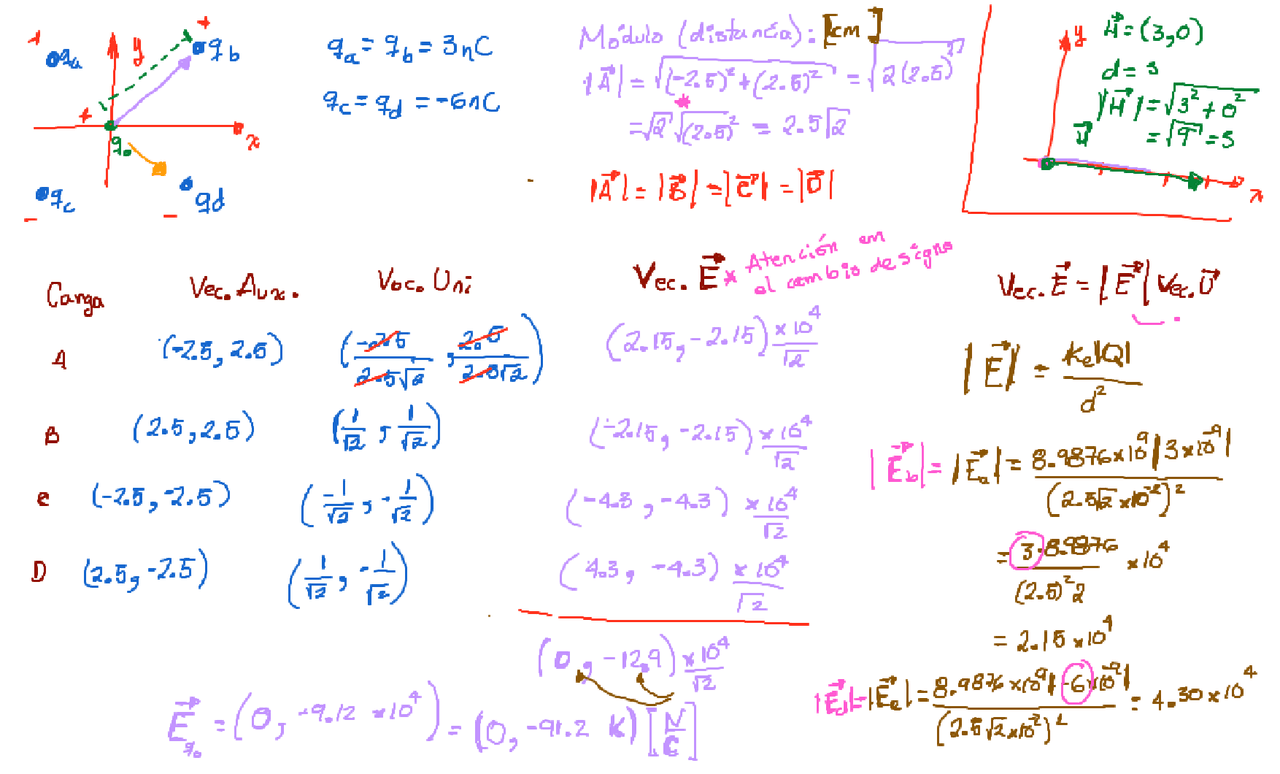 y
x
+ qa
+ qb
q₀
- qc
- qd
qa = qb = 3nC
qc = qd = -6nC
Módulo (distancia): [cm]
|A⃗| = √((-2.5)² + (2.5)²) = √(2(2.5)²)
= √2 √(2.5)² = 2.5√2
|A⃗| = |B⃗| = |C⃗| = |D⃗|
y
H⃗ = (3,0)
d = 3
|H⃗| = √(3² + 0²)
= √9 = 3
x
Carga Vec. Aux. Vec. Uni Vec. E⃗ * Atención en el cambio de signo
A (-2.5, 2.5) (-2.5/2.5√2, 2.5/2.5√2) (2.15, -2.15) ×10⁴/√2
B (2.5, 2.5) (1/√2, 1/√2) (-2.15, -2.15) ×10⁴/√2
C (-2.5, -2.5) (-1/√2, -1/√2) (-4.3, -4.3) ×10⁴/√2
D (2.5, -2.5) (1/√2, -1/√2) (4.3, -4.3) ×10⁴/√2
(0, -12.9) ×10⁴/√2
E⃗q₀ = (0, -9.12 ×10⁴) = (0, -91.2 k) [N/C]
Vec. E⃗ = |E⃗| Vec. U⃗
|E⃗| = ke|Q|/d²
|E⃗b| = |E⃗a| = 8.9876×10⁹|3×10⁻⁹|/(2.5√2 ×10⁻²)²
= 3·8.9876/(2.5)²2 ×10⁴
= 2.15 ×10⁴
|E⃗d| = |E⃗c| = 8.9876 ×10⁹|-6×10⁻⁹|/(2.5√2 ×10⁻²)² = 4.30 ×10⁴